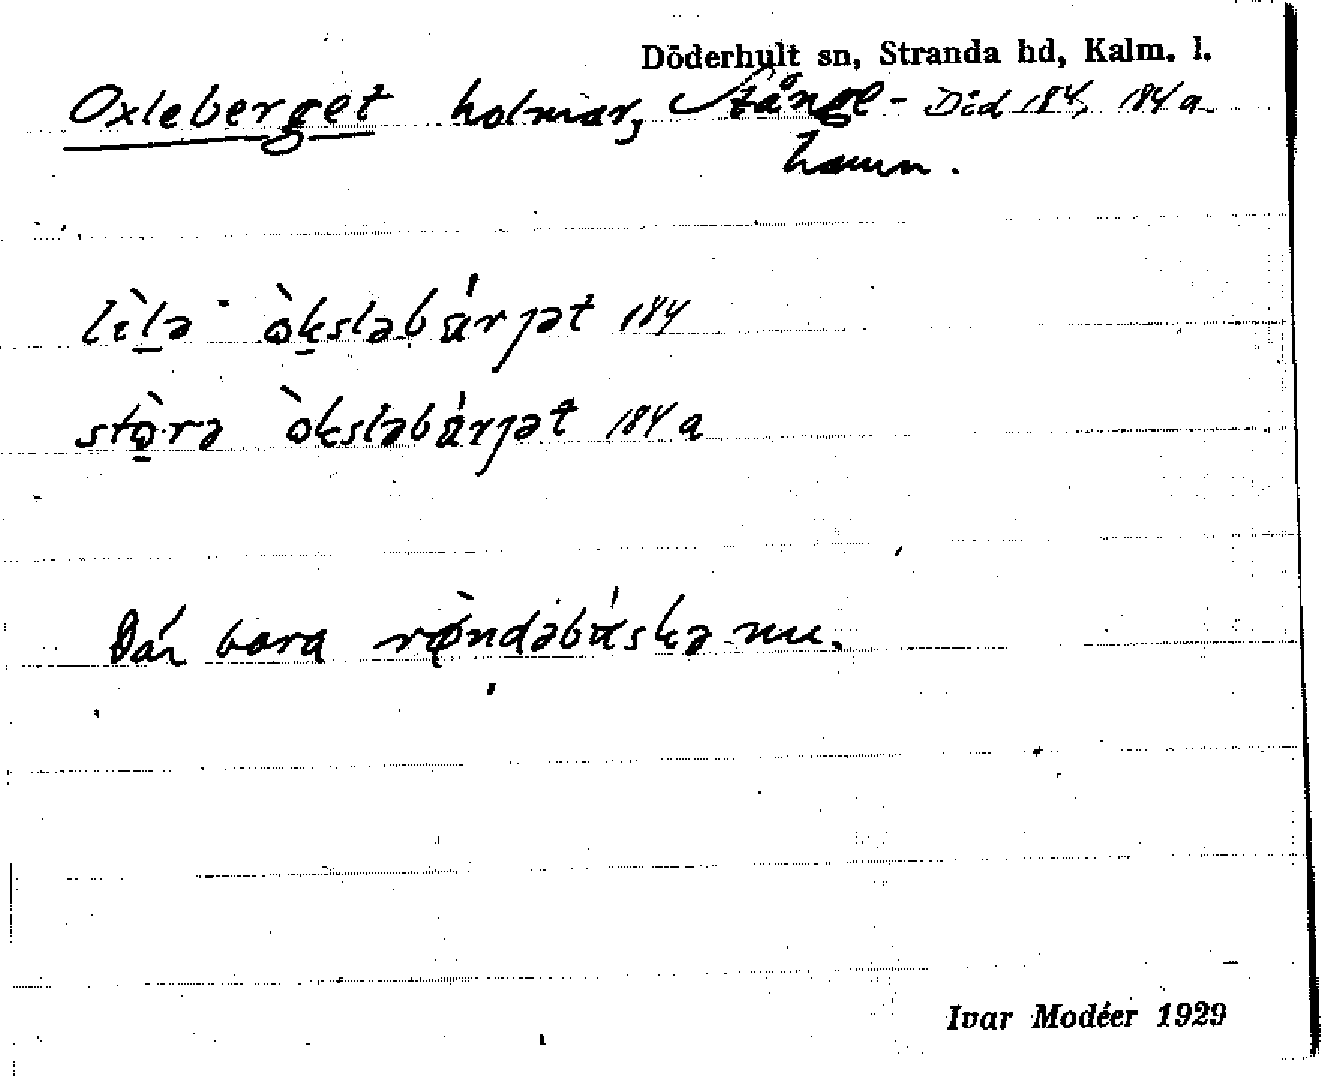 Döderhult sn, Stranda hd, Kalm. l.
Oxleberget holmar, Stånge- Död 184, 184 a
hamn.
lìlə òksləbárjət 184
stòrə òksləbárjət 184 a
Dár bara rø̀ndəbúskə nu.
Ivar Modéer 1929